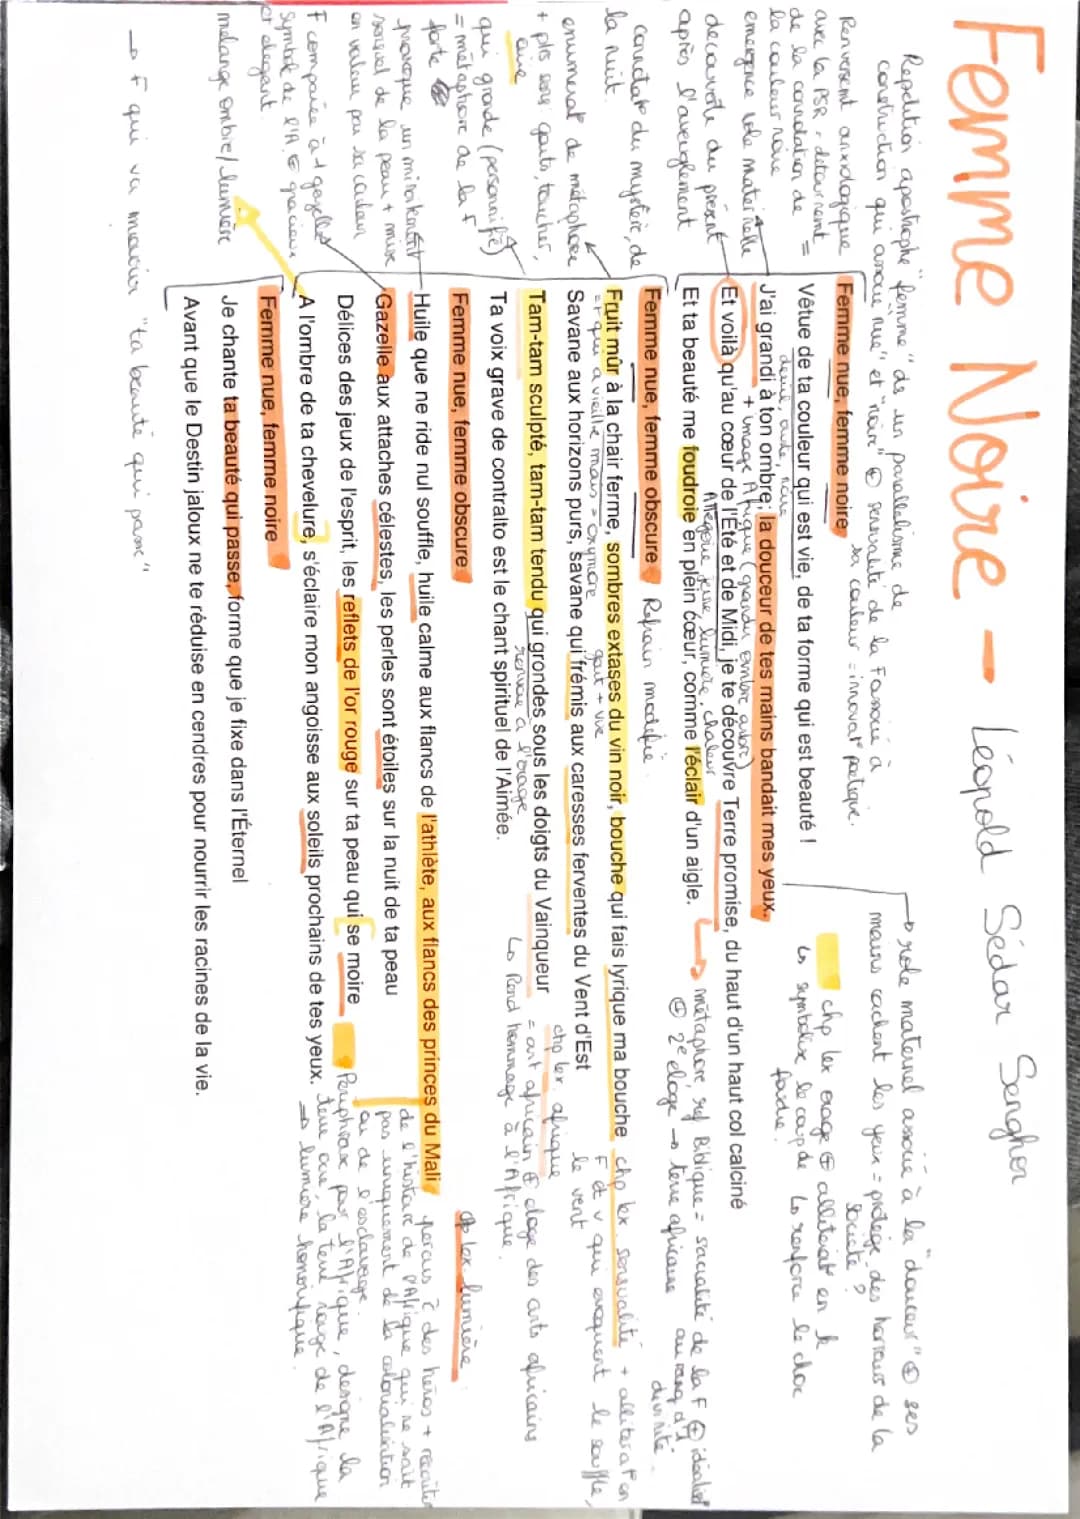 Femme Noire – Léopold Sédar Senghor
Répétition apostrophe "femme" ds un parallélisme de
construction qui associe "nue" et "noire" ⊕ sensualité de la F associé à
sa couleur = innovat° poétique.
Renversemt axiologique
avec la PSR, détournemt
de la connotation de =
la couleur noire
émergence role maternelle
découverte du présent
après l'aveuglement
connotat° du mystère, de
la nuit.
enumérat° de métaphore
+ plrs sens gouts, toucher,
ouïe
qui gronde (personnifié)
= métaphore de la F
forte
provoque un miroitement
sensuel de la peau + mise
en valeur par sa couleur
F comparée à 1 gazelle
symbole de l'A ⊕ gracieux
et élégant.
mélange ombre/lumière
→ F qui va mourir "ta beauté qui passe"
Femme nue, femme noire
Vêtue de ta couleur qui est vie, de ta forme qui est beauté !
J'ai grandi à ton ombre; la douceur de tes mains bandait mes yeux.
+ image Afrique (grandir ombre arbre)
Et voilà qu'au cœur de l'Eté et de Midi, je te découvre Terre promise, du haut d'un haut col calciné
Allégorie terre, lumière, chaleur
Et ta beauté me foudroie en plein cœur, comme l'éclair d'un aigle.
Femme nue, femme obscure
Refrain modifié
Fruit mûr à la chair ferme, sombres extases du vin noir, bouche qui fais lyrique ma bouche
= F qui a vieillie mais = oxymore
gout + vue
Savane aux horizons purs, savane qui frémis aux caresses ferventes du Vent d'Est
Tam-tam sculpté, tam-tam tendu qui grondes sous les doigts du Vainqueur
renvoie à l'orage
Ta voix grave de contralto est le chant spirituel de l'Aimée.
Femme nue, femme obscure
Huile que ne ride nul souffle, huile calme aux flancs de l'athlète, aux flancs des princes du Mali
Gazelle aux attaches célestes, les perles sont étoiles sur la nuit de ta peau
Délices des jeux de l'esprit, les reflets de l'or rouge sur ta peau qui se moire
A l'ombre de ta chevelure, s'éclaire mon angoisse aux soleils prochains de tes yeux.
Femme nue, femme noire
Je chante ta beauté qui passe, forme que je fixe dans l'Éternel
Avant que le Destin jaloux ne te réduise en cendres pour nourrir les racines de la vie.
→ role maternel associé à la "douceur" ⊕ ses
mains cachent les yeux = protège des horreurs de la
société ?
chp lex orage ⊕ allitérat° en k
↳ symbolise le coup de foudre.
↳ renforce le choc
métaphore, ref Biblique = sacralité de la F ⊕ idéalisé
au rang d'1
divinité
⊕ 2e éloge → terre africaine
chp lex. sensualité + allitérat° en
F et v qui évoquent le souffle,
le vent
chp lex. afrique
= art africain ⊕ éloge des arts africains
↳ Rend hommage à l'Afrique.
chp lex lumière
perçus c des héros + récits
de l'histoire de l'Afrique qui ne soit
pas uniquement de la colonialisation
ou de l'esclavage.
Périphrase pour l'Afrique, désigne la
terre ocre, la terre rouge de l'Afrique
→ lumière honorifique.